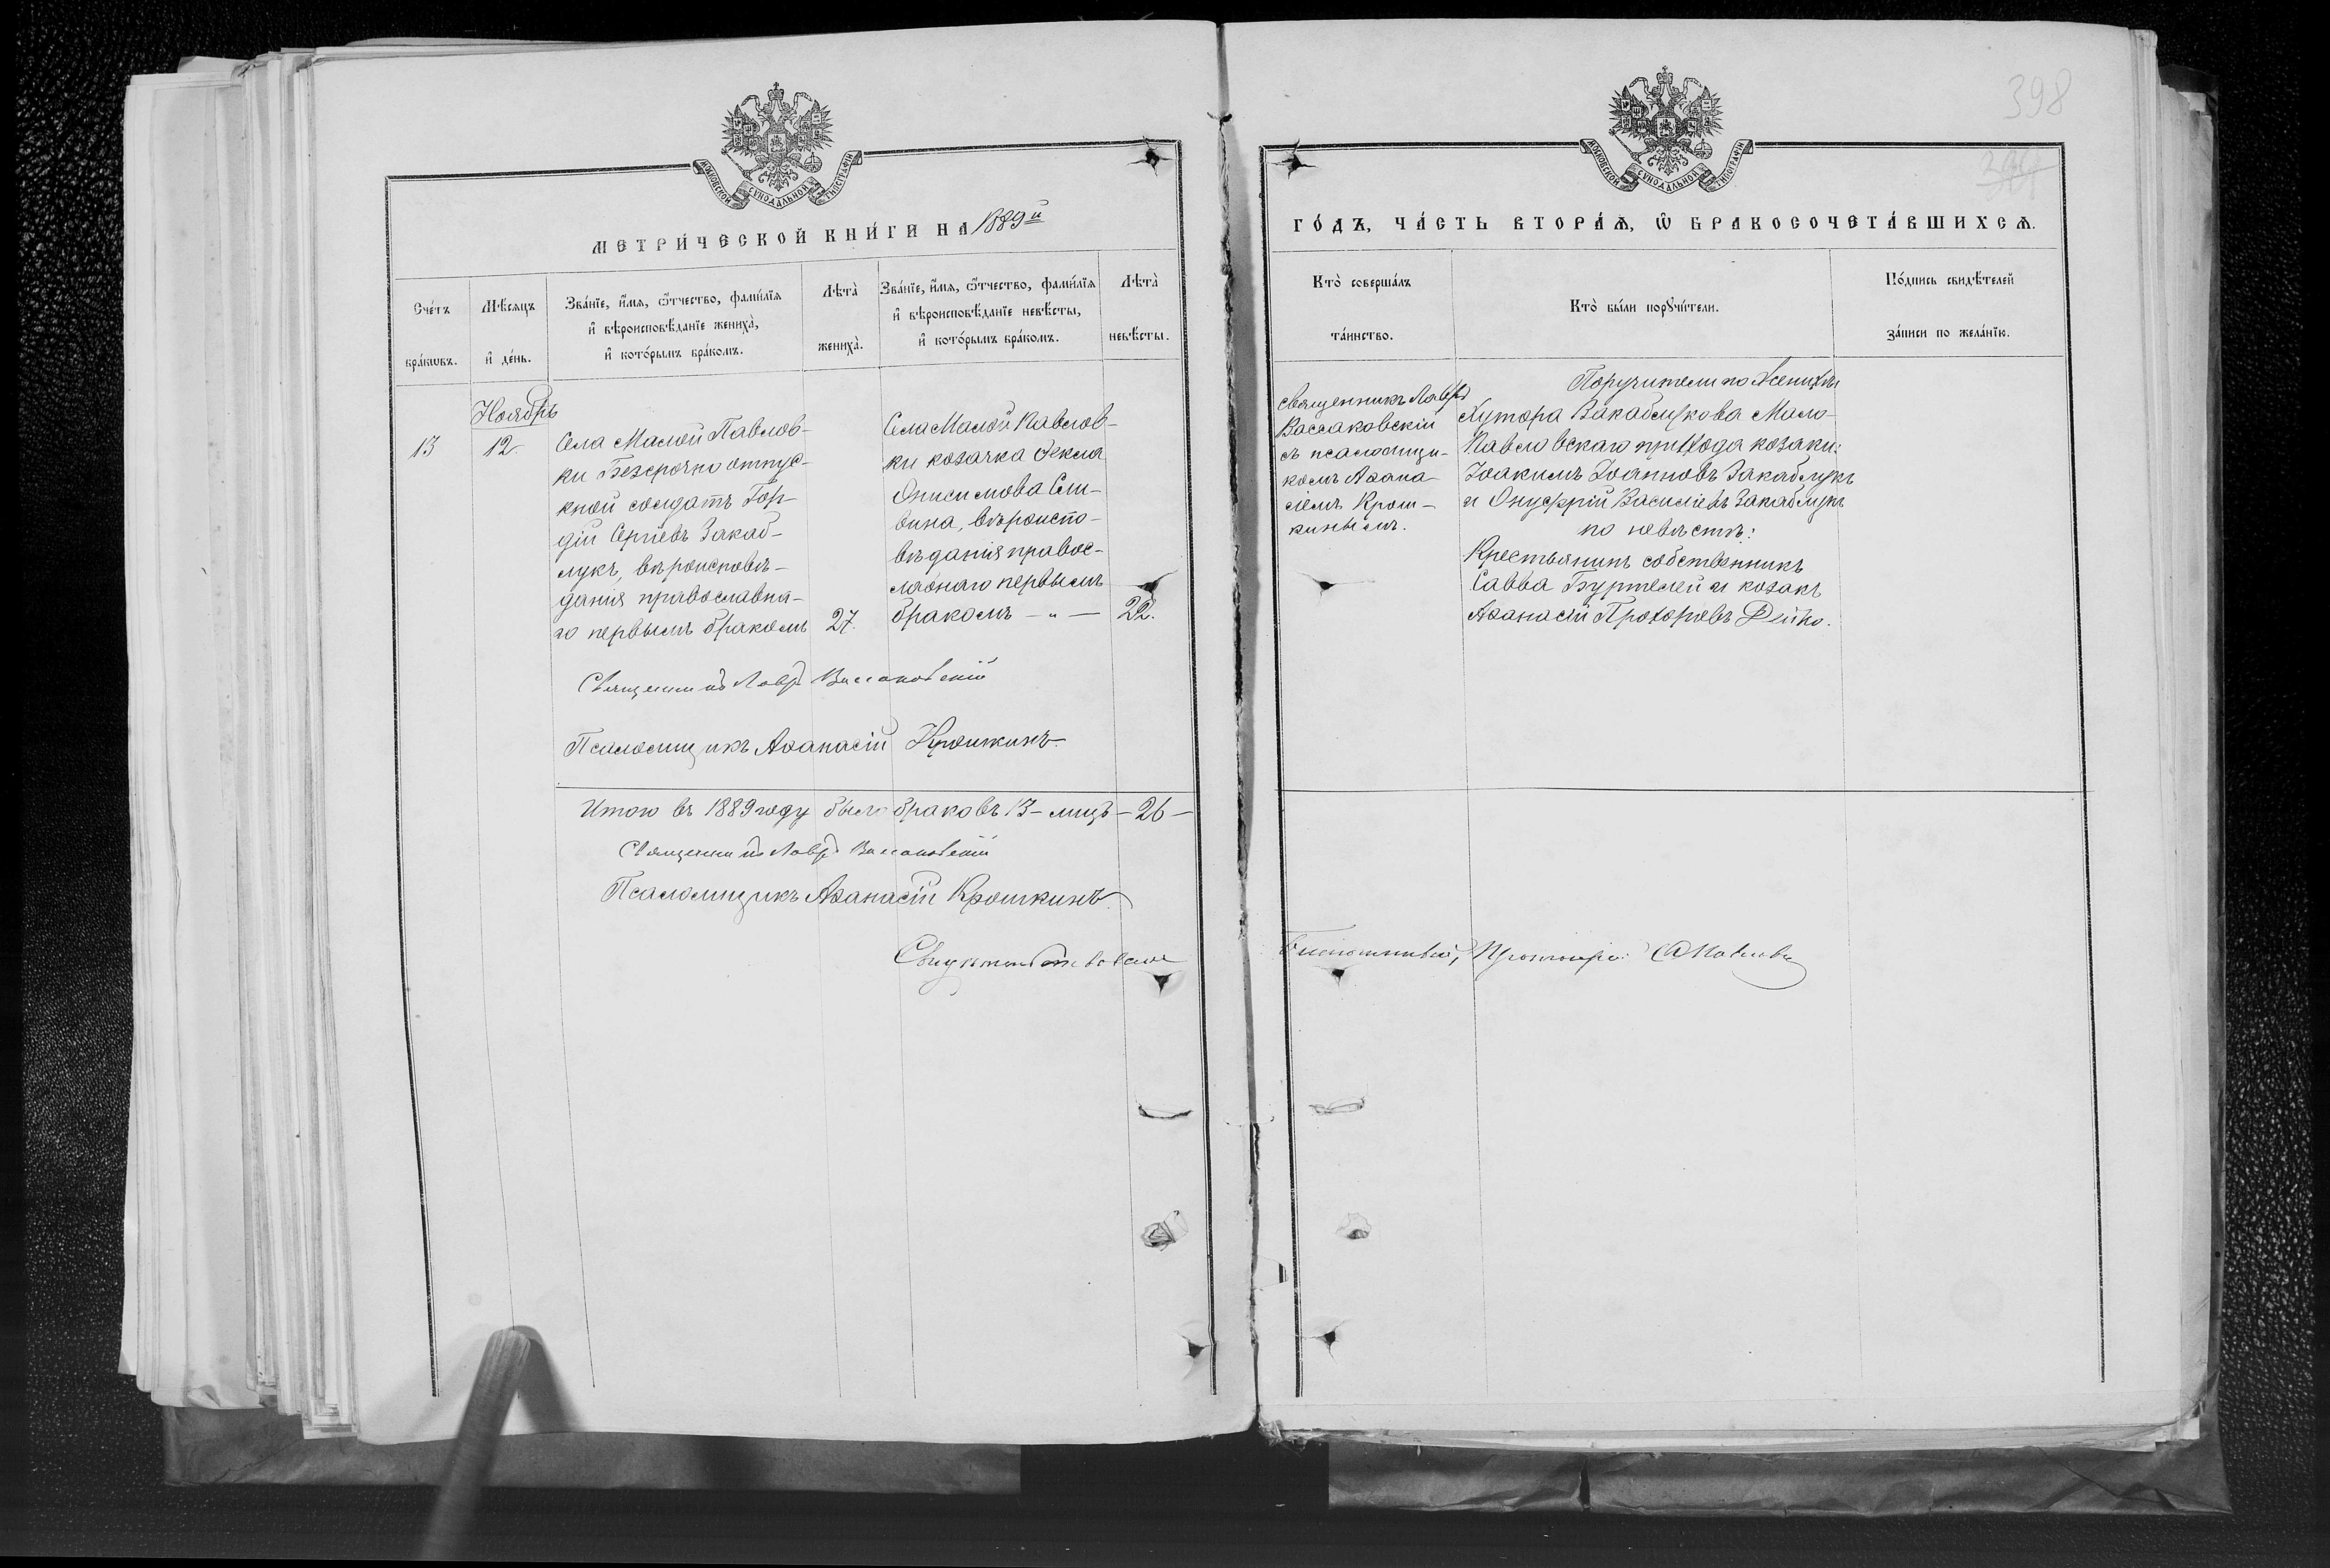 398
МОСКОВСКОЙ СУНОДАЛЬНОЙ ТИПОГРАФІИ
МЕТРИ́ЧЕСКОЙ КНИ́ГИ НА 1889й
Сче́тъ бра́кѡвъ.
Мѣ́сяцъ и҆ де́нь.
Зва́нїе, и҆́мя, ѻ҆́тчество, фами́лїя и҆ вѣроисповѣ́данїе жениха̀, и҆ кото́рымъ бра́комъ.
Лѣта̀ жениха̀.
Зва́нїе, и҆́мя, ѻ҆́тчество, фами́лїя и҆ вѣроисповѣ́данїе невѣ́сты, и҆ кото́рымъ бра́комъ.
Лѣта̀ невѣ́сты.
Ноябрь
13
12.
Села Малой Павлов-
ки Безсрочно отпус-
кной солдатъ Гор-
дій Сергіевъ Закаб-
лукъ, вѣроисповѣ-
данія православна-
го первымъ бракомъ
27.
Села Малой Павлов-
ки козачка Ѳекла
Онисимова Сли-
вина, вѣроиспо-
вѣданія правос-
лавнаго первымъ
бракомъ — " —
22.
Священникъ Лавръ Вассаковскій
Псаломщикъ Аѳанасій Крошкинъ.
Итого въ 1889 году было браковъ 13 - лицъ - 26 -
Священникъ Лавръ Вассаковскій
Псаломщикъ Аѳанасій Крошкинъ
МОСКОВСКОЙ СУНОДАЛЬНОЙ ТИПОГРАФІИ
ГО́ДЪ, ЧА́СТЬ ВТОРА́Ѧ, Ѡ҆ БРАКОСОЧЕТА́ВШИХСѦ.
Кто̀ соверша́лъ та́инство.
Кто̀ бы́ли порꙋчи́тели.
По́дпись свидѣ́телей за́писи по жела́нїю.
священникъ Лавръ
Вассаковскій
съ псаломщи-
комъ Аѳана-
сіемъ Крош-
кинымъ.
Поручители по женихѣ
Хутора Закаблукова Мало-
Павловскаго прихода козаки:
Іоакимъ Іоанновъ Закаблукъ
и Онуфрій Василіевъ Закаблукъ
по невѣстѣ:
Крестьянинъ собственникъ
Савва Буртелей и козакъ
Аѳанасій Прохоровъ Дейко.
Свидѣтельствовалъ Благочинный, Протоіерей